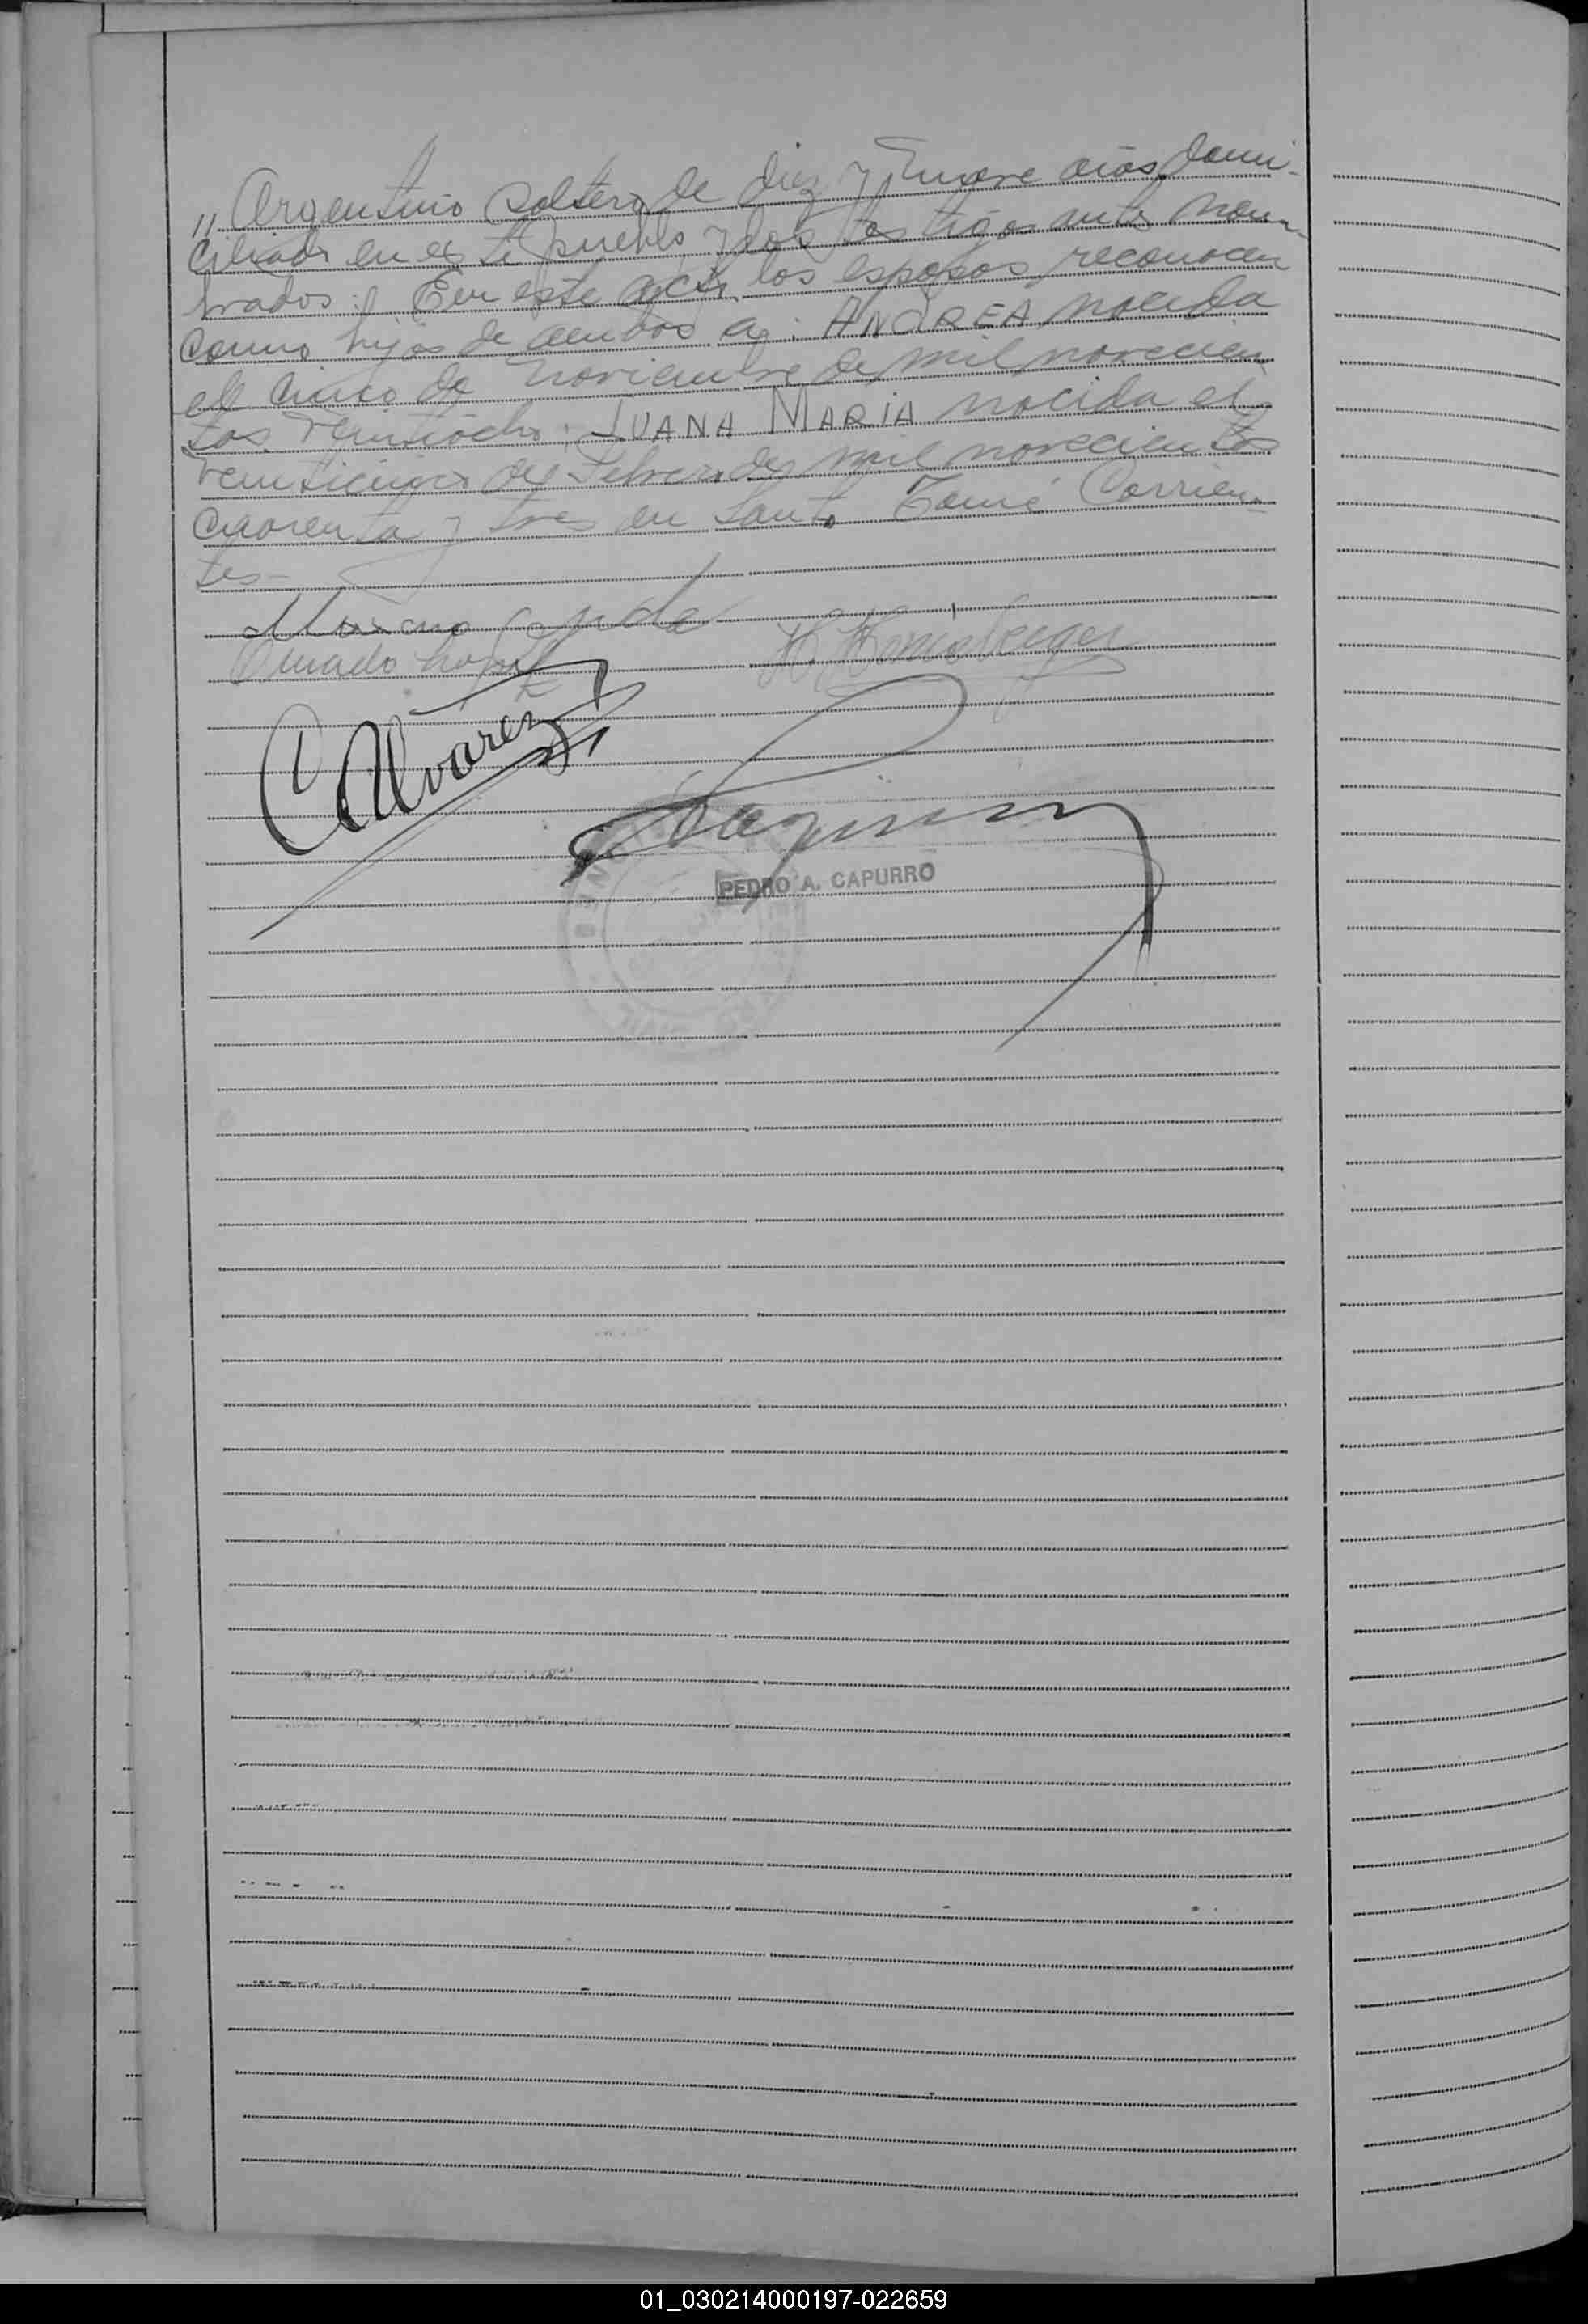 " Argentino soltero de diez y nueve años domi-
ciliado en este pueblo y los testigos antes nom-
brados.- En este acto los esposos reconocen
como hijos de ambos a: ANDREA nacida
el cinco de noviembre de mil novecien
tos veintiocho. JUANA MARIA nacida el
veinticinco de Febrero de mil novecientos
cuarenta y tres en Santo Tomé Corrien-
tes-
Amado
C Alvarez
PEDRO A. CAPURRO
01_030214000197-022659